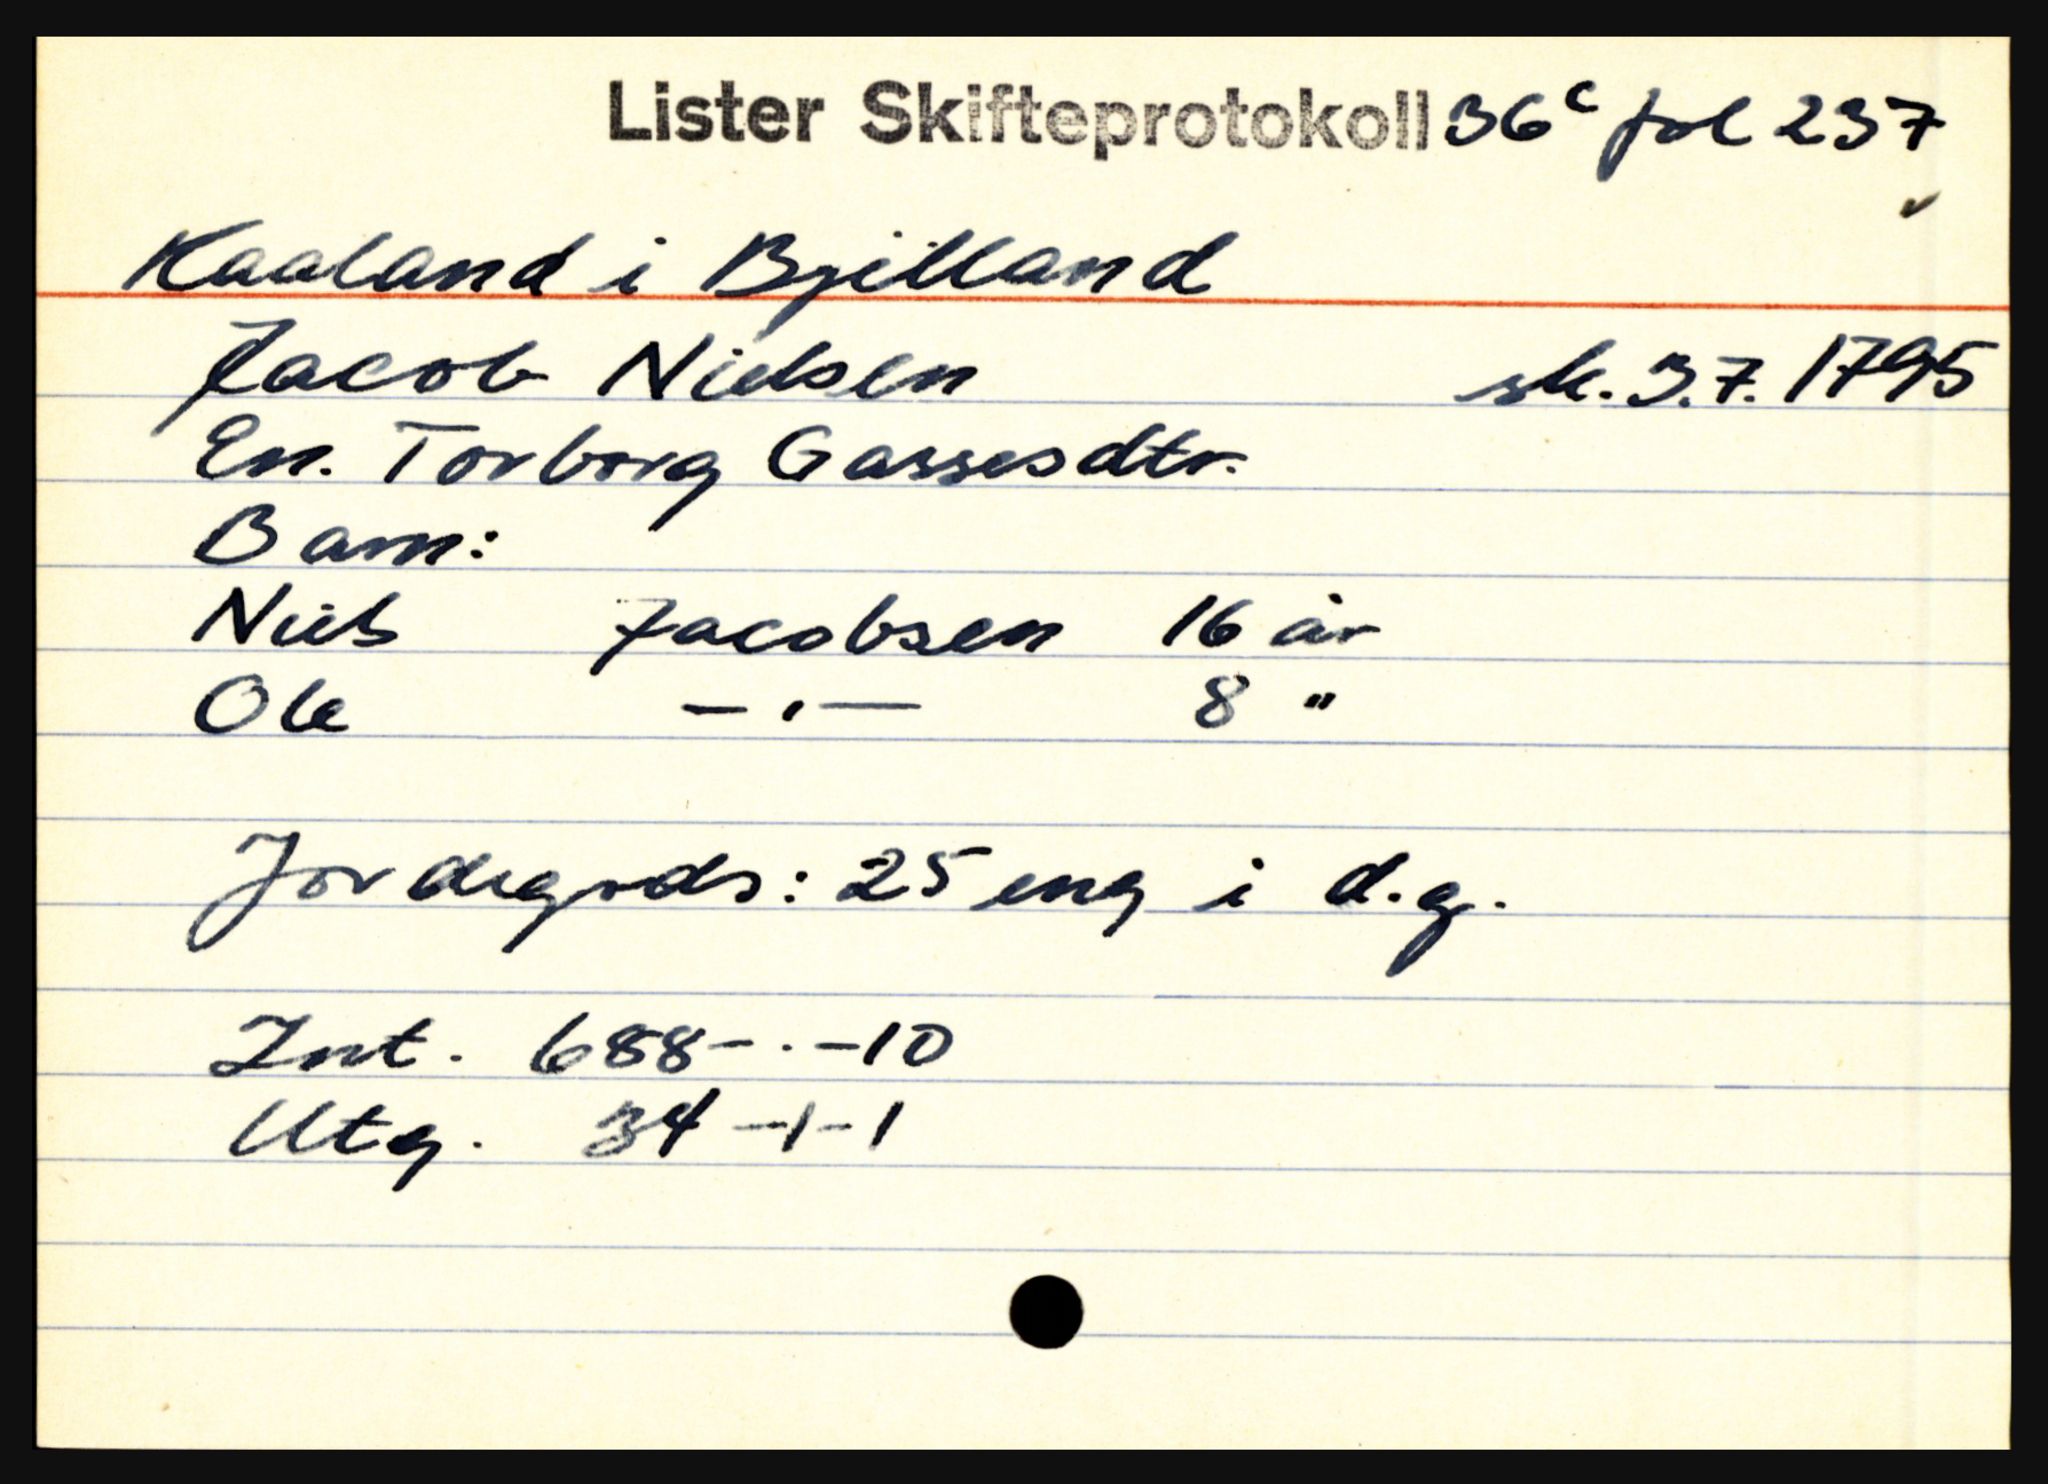 Lister Skifteprotokoll 36c fol 237
Kaaland i Bjelland
Jacob Nielsen sk. 3.7. 1795
En. Torborg Gassesdtr.
Barn:
Niels Jacobsen 16 år
Ole — ‚ — 8 "
Jordegods: 25 eng i d.g.
Int. 688 - . - 10
Utg. 34 - 1 - 1